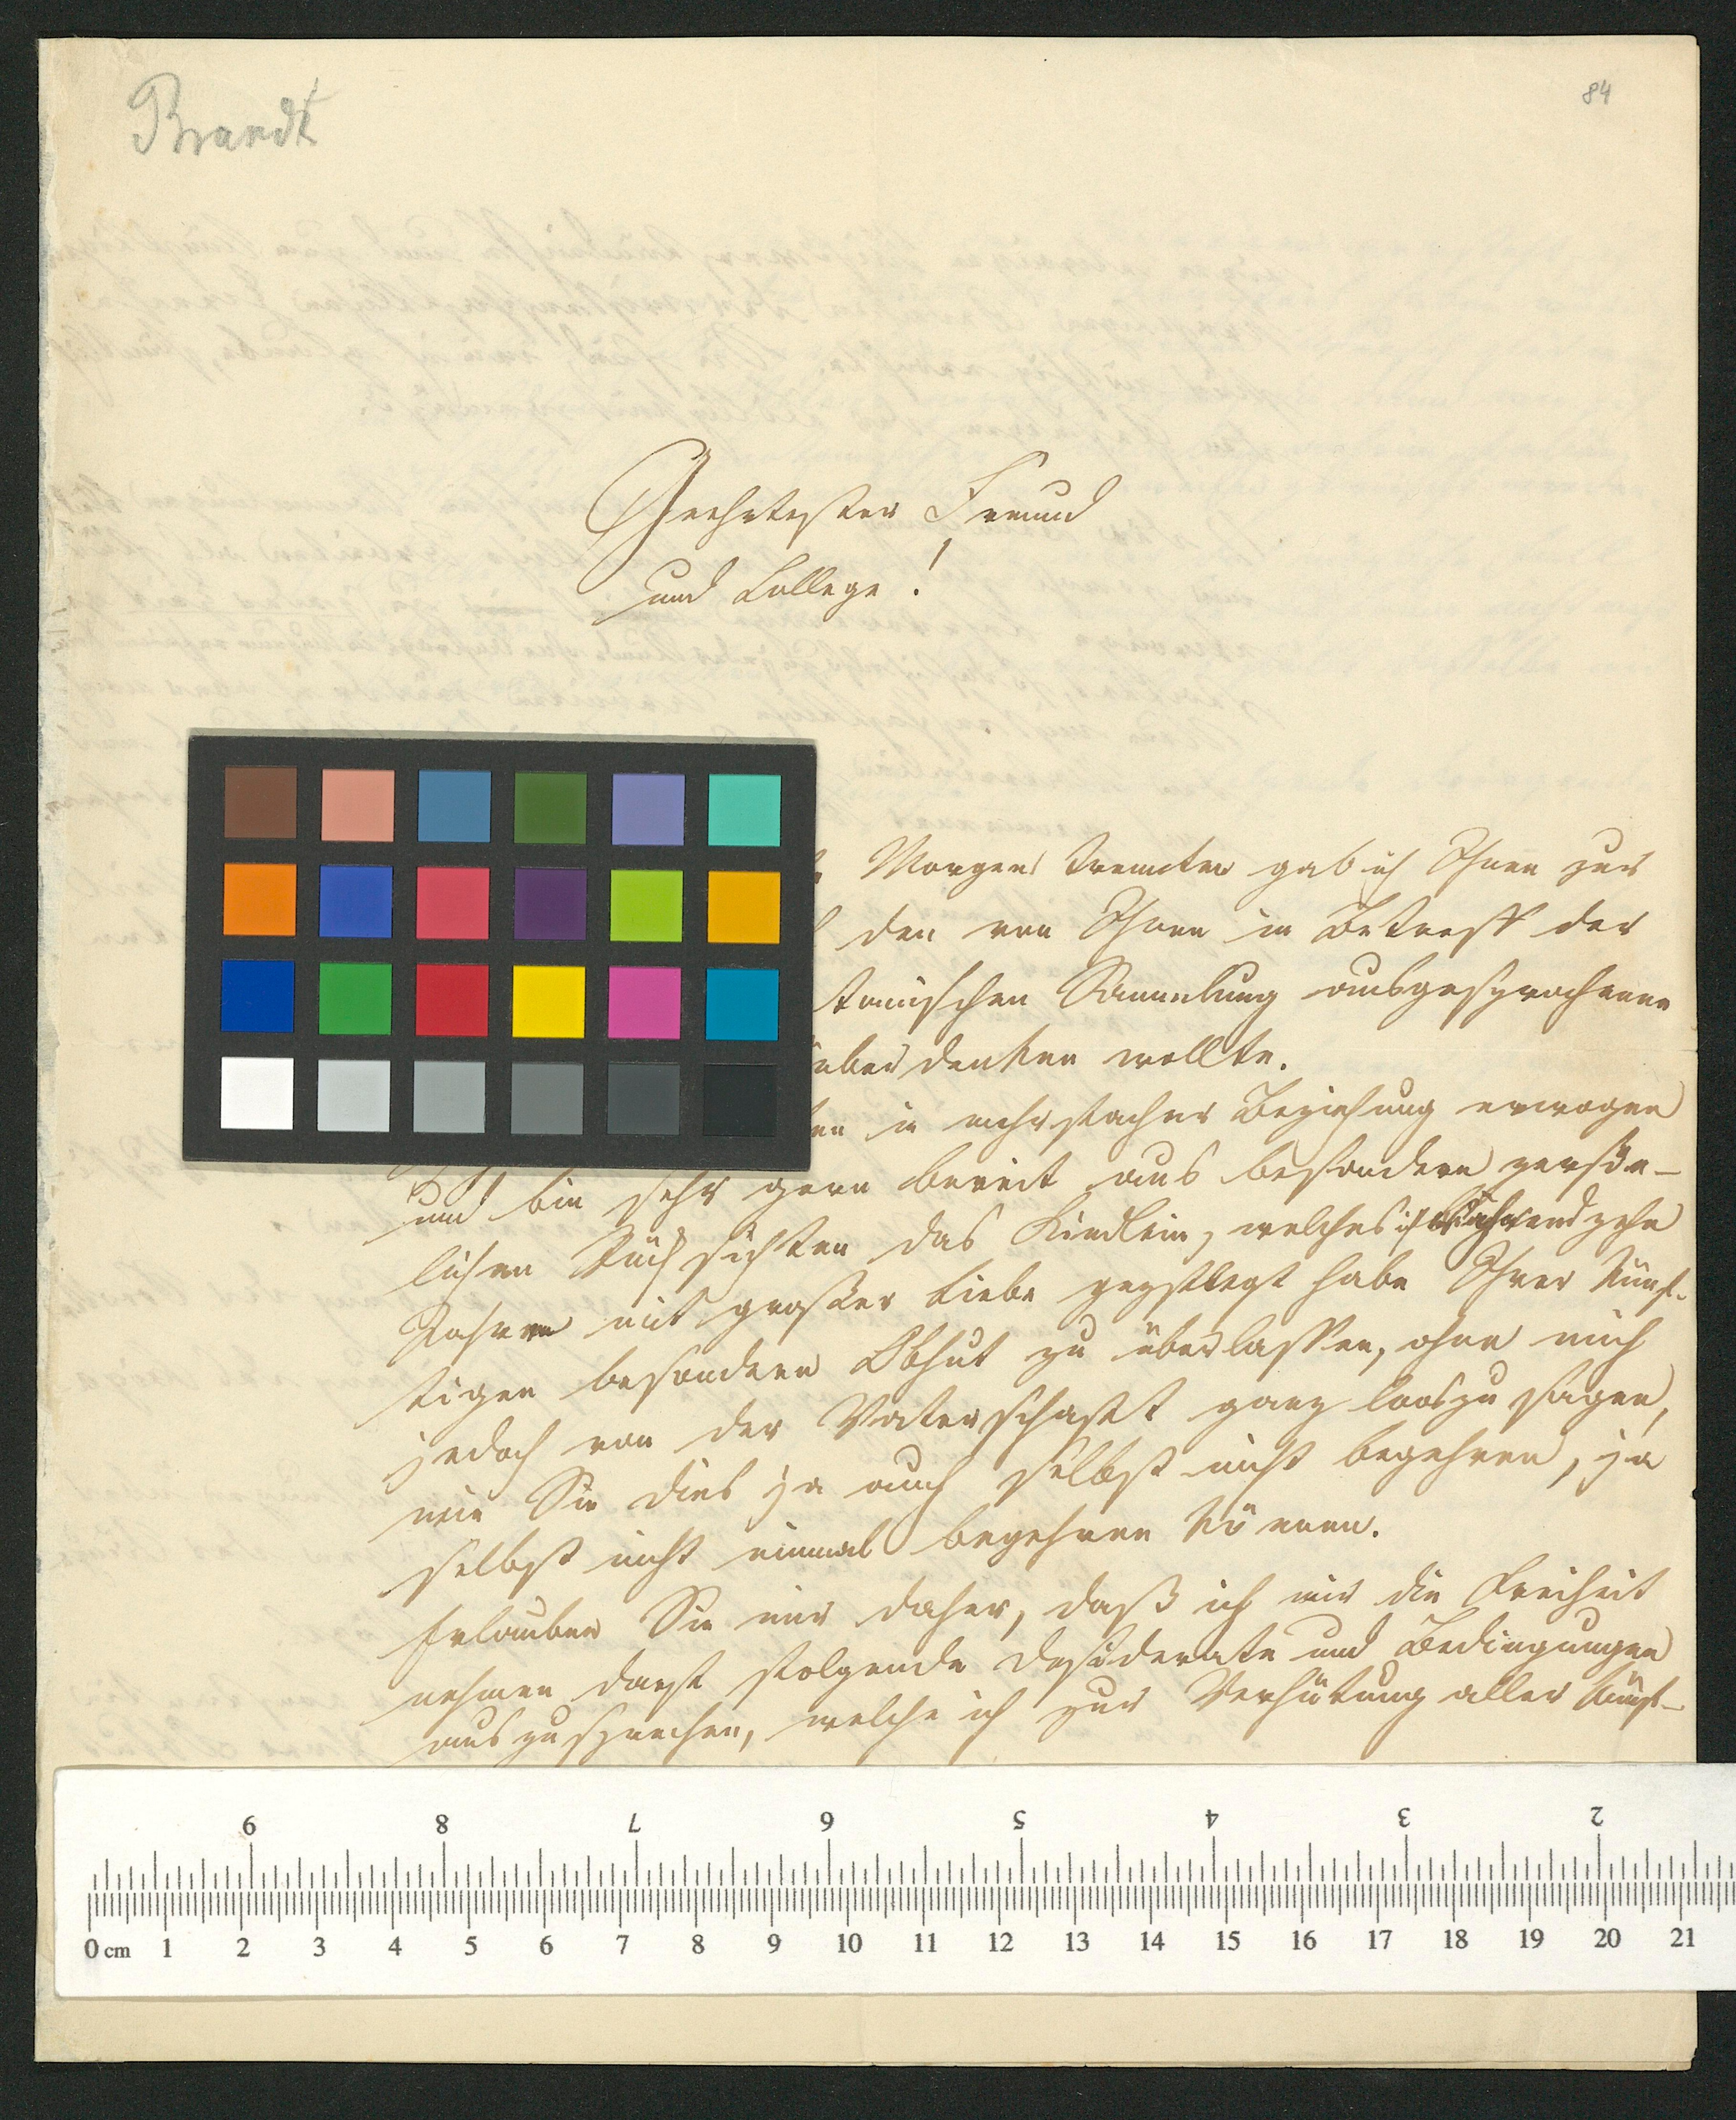 Brandt
84
Geehrtester Freund
und College!
Morgens trennten gab ich Ihnen zur
den von Ihnen in Betreff der
tomischen Sammlung ausgesprochenen
ueberdenken wollte.
in mehrfacher Beziehung erwogen
und bin sehr gern bereit aus besondern persön-
lichen Rücksichten das Kindlein, welches ich während zehn
Jahren mit großer Liebe gepflegt habe Ihrer künf-
tigen besondern Obhut zu überlassen, ohne mich
jedoch von der Vaterschaft ganz loszusagen,
wie Sie dies ja auch selbst nicht begehren, ja
selbst nicht einmal begehren können.
Erlauben Sie mir daher, daß ich mir die Freiheit
nehmen darf folgende Desiderate und Bedingungen
auszusprechen, welche ich zur Verhütung aller künf-
9 8 7 6 5 4 3 2
0 cm 1 2 3 4 5 6 7 8 9 10 11 12 13 14 15 16 17 18 19 20 21